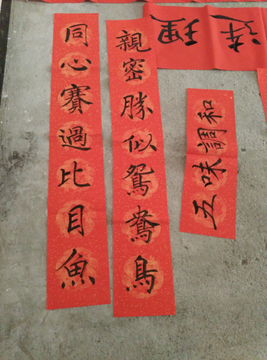 親密勝似鴛鴦鳥
同心賽過比目魚
連理
五味調和